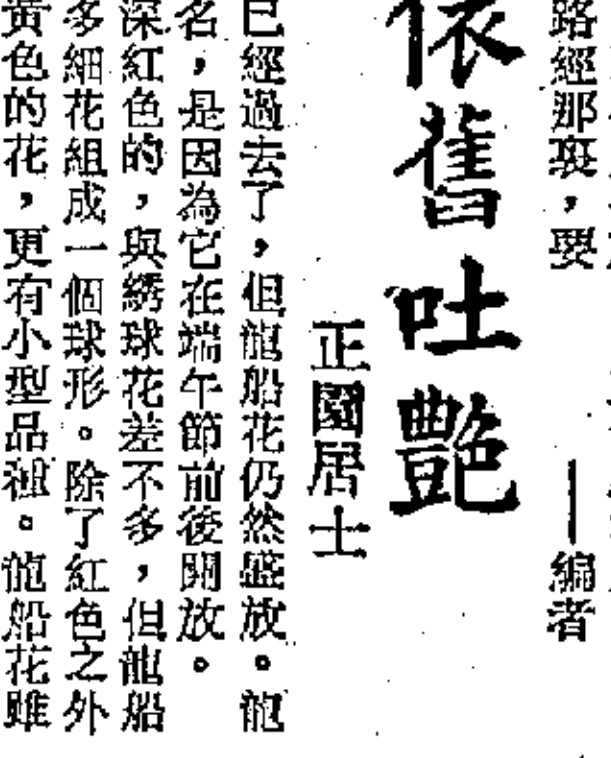 路經那裏，要
——編者
依舊吐艷
正園居士
已經過去了，但龍船花仍然盛放。龍
名，是因為它在端午節前後開放。
深紅色的，與綉球花差不多，但龍船
多細花組成一個球形。除了紅色之外
黃色的花，更有小型品種。龍船花雖